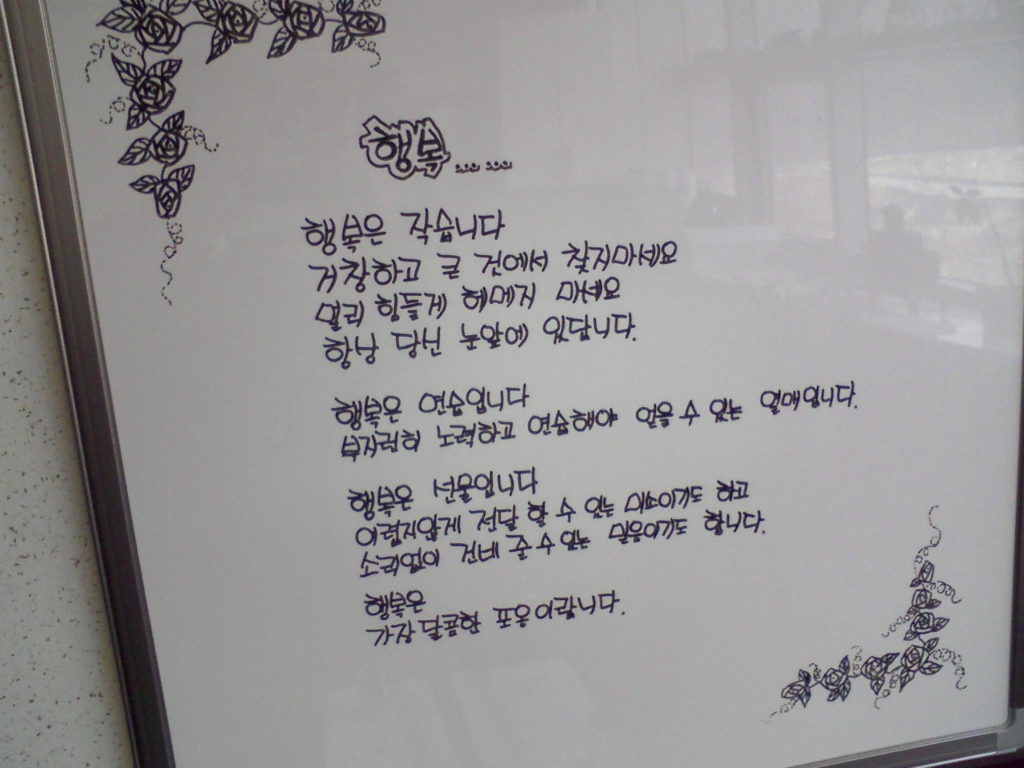 행복......
행복은 작습니다
거창하고 큰 것에서 찾지마세요
멀리 힘들게 헤메지 마세요
항상 당신 눈앞에 있답니다.
행복은 연습입니다
부지런히 노력하고 연습해야 얻을 수 있는 열매입니다.
행복은 선물입니다
어렵지않게 전달 할 수 있는 미소이기도 하고
소리없이 건네 줄 수 있는 믿음이기도 합니다.
행복은
가장 달콤한 포옹이랍니다.